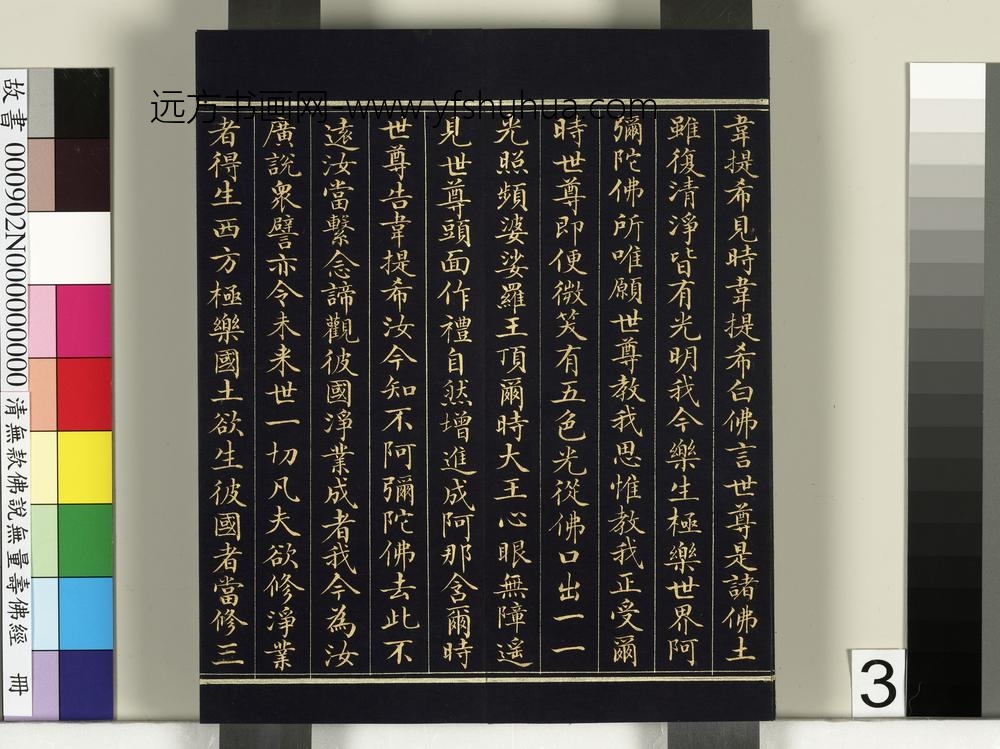 远方书画网 www.yfshuhua.com
韋提希見時韋提希白佛言世尊是諸佛土
雖復清淨皆有光明我今樂生極樂世界阿
彌陀佛所唯願世尊教我思惟教我正受爾
時世尊即便微笑有五色光從佛口出一一
光照頻婆娑羅王頂爾時大王心眼無障遥
見世尊頭面作禮自然增進成阿那含爾時
世尊告韋提希汝今知不阿彌陀佛去此不
遠汝當繫念諦觀彼國淨業成者我今為汝
廣說衆譬亦令未来世一切凡夫欲修淨業
者得生西方極樂國土欲生彼國者當修三
故書 000902N000000000 清無款佛說無量壽佛經 冊
3